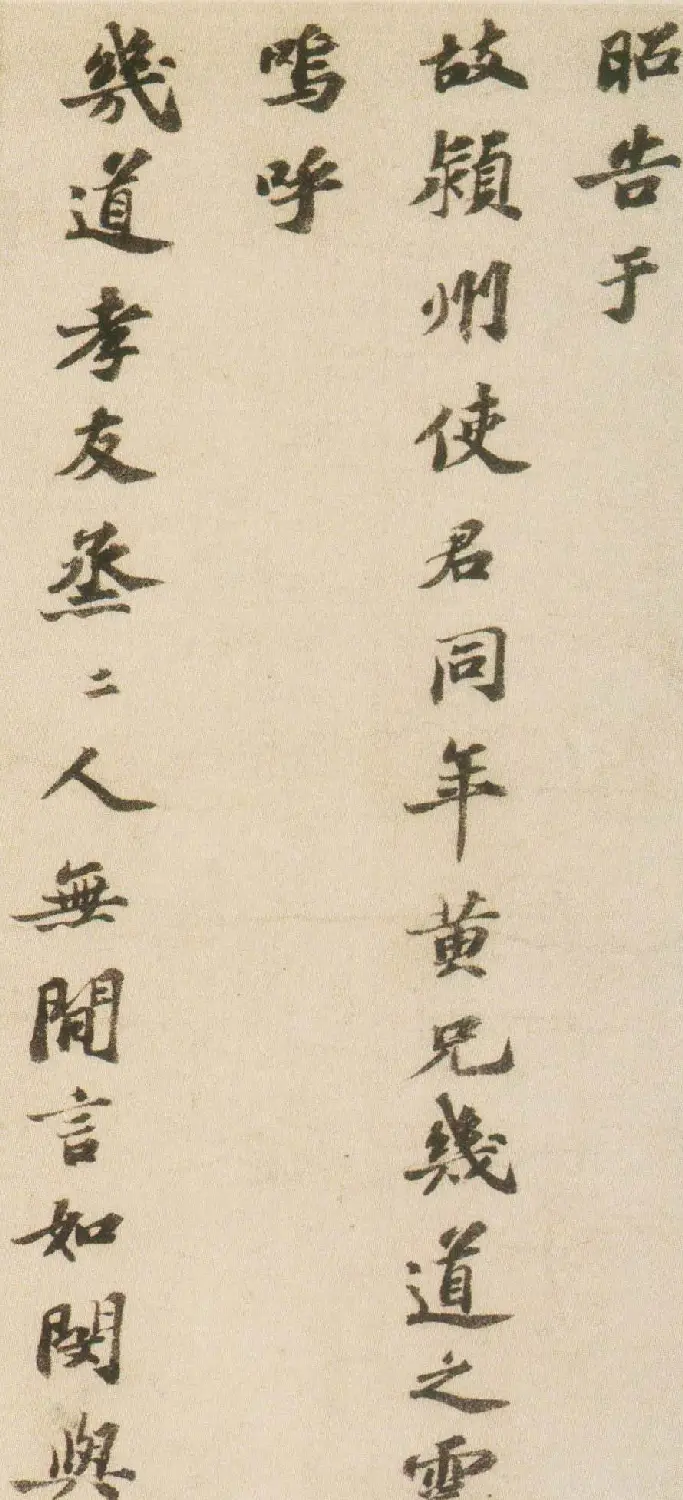 昭告于
故潁州使君同年黄兄幾道之靈
嗚呼
幾道孝友烝二人無間言如閔與